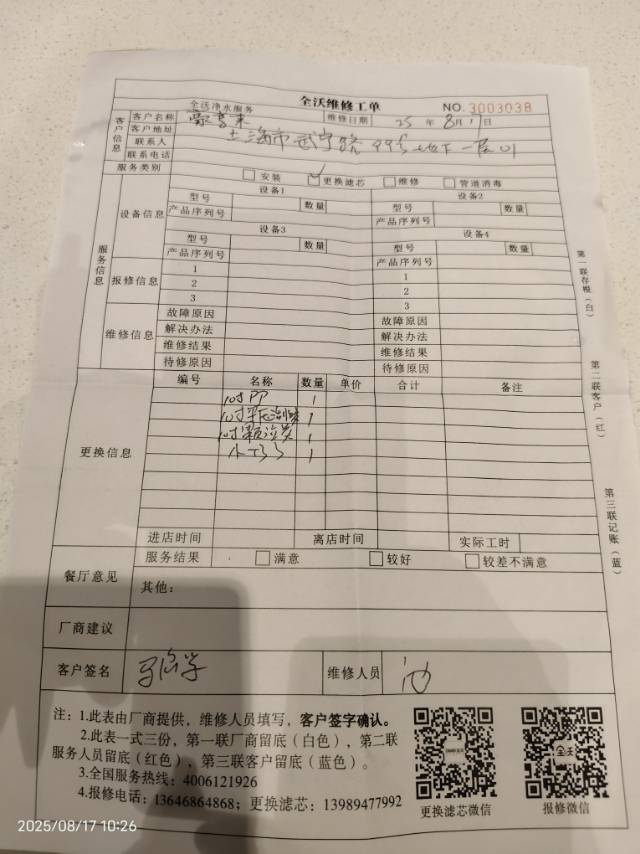 全沃净水服务 全沃维修工单 NO.3003038
客户信息
客户名称 蒙高来 维修日期 25年8月17日
客户地址 上海市武宁路99号地下一层01
联系人
联系电话
服务类别 安装 更换滤芯 维修 管道消毒
服务信息
设备信息
设备1 设备2
型号 数量 型号 数量
产品序列号 产品序列号
设备3 设备4
型号 数量 型号 数量
产品序列号 产品序列号
报修信息
1 1
2 2
3 3
维修信息
故障原因 故障原因
解决办法 解决办法
维修结果 维修结果
待修原因 待修原因
更换信息
编号 名称 数量 单价 合计 备注
10寸PP 1
10寸 1
10寸 1
小T33 1
进店时间 离店时间 实际工时
餐厅意见
服务结果 满意 较好 较差不满意
其他:
厂商建议
客户签名 维修人员
注:1.此表由厂商提供,维修人员填写,客户签字确认。
2.此表一式三份,第一联厂商留底(白色),第二联
服务人员留底(红色),第三联客户留底(蓝色)。
3.全国服务热线:4006121926
4.报修电话:13646864868;更换滤芯:13989477992
更换滤芯微信 报修微信
全沃
第一联存根(白)
第二联客户(红)
第三联记账(蓝)
2025/08/17 10:26